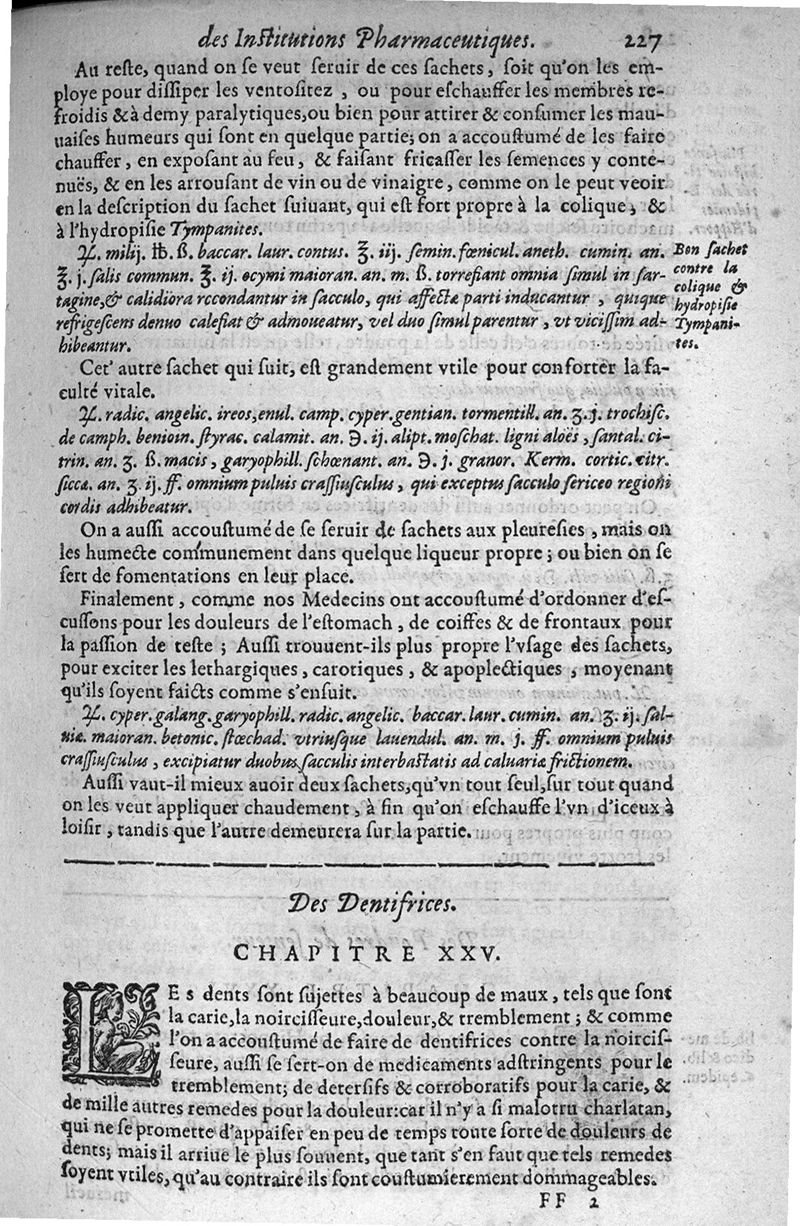 des Institutions Pharmaceutiques. 227
Au reſte, quand on ſe veut ſeruir de ces ſachets, ſoit qu'on les em-
ploye pour diſſiper les ventoſitez, ou pour eſchauffer les membres re-
froidis & à demy paralytiques, ou bien pour attirer & conſumer les mau-
uaiſes humeurs qui ſont en quelque partie; on a accouſtumé de les faire
chauffer, en expoſant au feu, & faiſant fricaſſer les ſemences y conte-
nuës, & en les arrouſant de vin ou de vinaigre, comme on le peut veoir
en la deſcription du ſachet ſuiuant, qui eſt fort propre à la colique, &
à l'hydropiſie Tympanites.
♃. milij. ℔. ß. baccar. laur. contus. ℥. iij. ſemin. fœnicul. aneth. cumin. an.
℥. j. ſalis commun. ℥. ij. ocymi maioran. an. m. ß. torrefiant omnia ſimul in ſar-
tagine, & calidiora rccondantur in ſacculo, qui affectæ parti inducantur, quique
refrigeſcens denuo calefiat & admoueatur, vel duo ſimul parentur, vt viciſſim ad-
hibeantur.
Bon ſachet
contre la
colique &
hydropiſie
Tympani-
tes.
Cet' autre ſachet qui ſuit, eſt grandement vtile pour conforter la fa-
culté vitale.
♃. radic. angelic. ireos, enul. camp. cyper. gentian. tormentill. an. ʒ. j. trochiſc.
de camph. benioin. ſtyrac. calamit. an. ℈. ij. alipt. moſchat. ligni aloës, ſantal. ci-
trin. an. ʒ. ß. macis, garyophill. ſchœnant. an. ℈. j. granor. Kerm. cortic. citr.
ſicca. an. ʒ. ij. ff. omnium puluis craſſiuſculus, qui exceptus ſacculo ſericeo regioni
cordis adhibeatur.
On a auſſi accouſtumé de ſe ſeruir de ſachets aux pleureſies, mais on
les humecte communement dans quelque liqueur propre; ou bien on ſe
ſert de fomentations en leur place.
Finalement, comme nos Medecins ont accouſtumé d'ordonner d'eſ-
cuſſons pour les douleurs de l'eſtomach, de coiffes & de frontaux pour
la paſſion de teſte; Auſſi trouuent-ils plus propre l'vſage des ſachets,
pour exciter les lethargiques, carotiques, & apoplectiques, moyenant
qu'ils ſoyent faicts comme s'enſuit.
♃. cyper. galang. garyophill. radic. angelic. baccar. laur. cumin. an. ʒ. ij. ſal-
uiæ. maioran. betonic. ſtœchad. vtriuſque lauendul. an. m. j. ff. omnium puluis
craſſiuſculus, excipiatur duobus ſacculis interbaſtatis ad caluariæ frictionem.
Auſſi vaut-il mieux auoir deux ſachets, qu'vn tout ſeul, ſur tout quand
on les veut appliquer chaudement, à fin qu'on eſchauffe l'vn d'iceux à
loiſir, tandis que l'autre demeurera ſur la partie.
Des Dentifrices.
CHAPITRE XXV.
LEs dents ſont ſujettes à beaucoup de maux, tels que ſont
la carie, la noirciſſeure, douleur, & tremblement; & comme
l'on a accouſtumé de faire de dentifrices contre la noirciſ-
ſeure, auſſi ſe ſert-on de medicaments adſtringents pour le
tremblement; de deterſifs & corroboratifs pour la carie, &
de mille autres remedes pour la douleur: car il n'y a ſi malotru charlatan,
qui ne ſe promette d'appaiſer en peu de temps toute ſorte de douleurs de
dents; mais il arriue le plus ſouuent, que tant s'en faut que tels remedes
ſoyent vtiles, qu'au contraire ils ſont couſtumierement dommageables.
FF 2